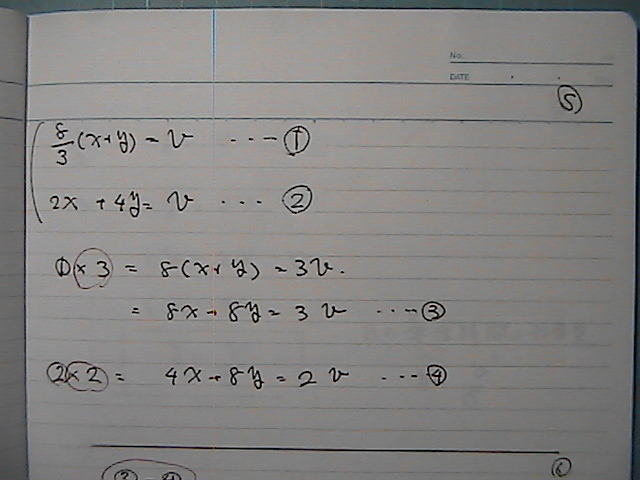 No.
DATE
⑤
8/3 (x+y) = v ---- ①
2x + 4y = v ... ②
①×3 = 8(x+y) = 3v.
= 8x+8y = 3v ---- ③
②×2 = 4x+8y = 2v ---- ④
⑥
③-④